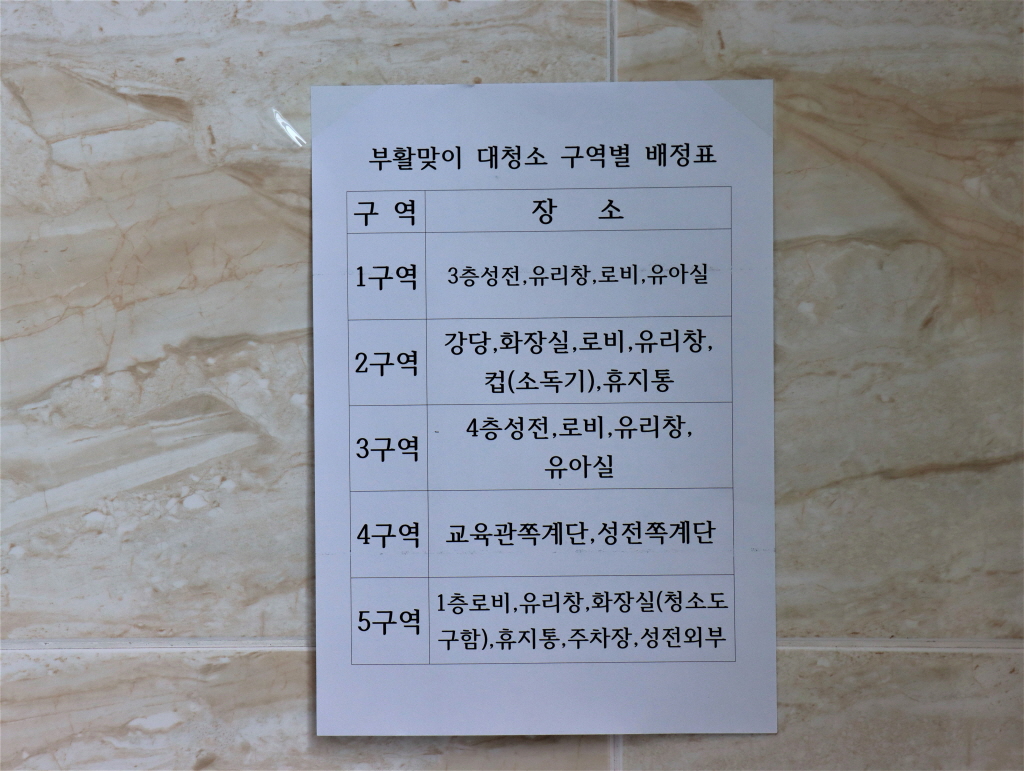 부활맞이 대청소 구역별 배정표
구 역 장 소
1구역 3층성전,유리창,로비,유아실
2구역 강당,화장실,로비,유리창,
컵(소독기),휴지통
3구역 4층성전,로비,유리창,
유아실
4구역 교육관쪽계단,성전쪽계단
5구역 1층로비,유리창,화장실(청소도
구함),휴지통,주차장,성전외부